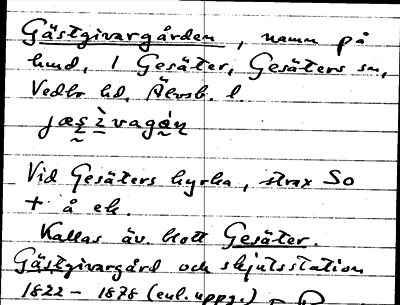 Gästgivargården, namn på
hmd, 1 Gesäter, Gesäters sn,
Vedbo hd, Älvsb. l
jæșìvagáṇ
Vid Gesäters kyrka, strax So
+ å ek.
Kallas äv. blott Gesäter.
Gästgivargård och skjutsstation
1822 – 1878 (enl. uppg.)